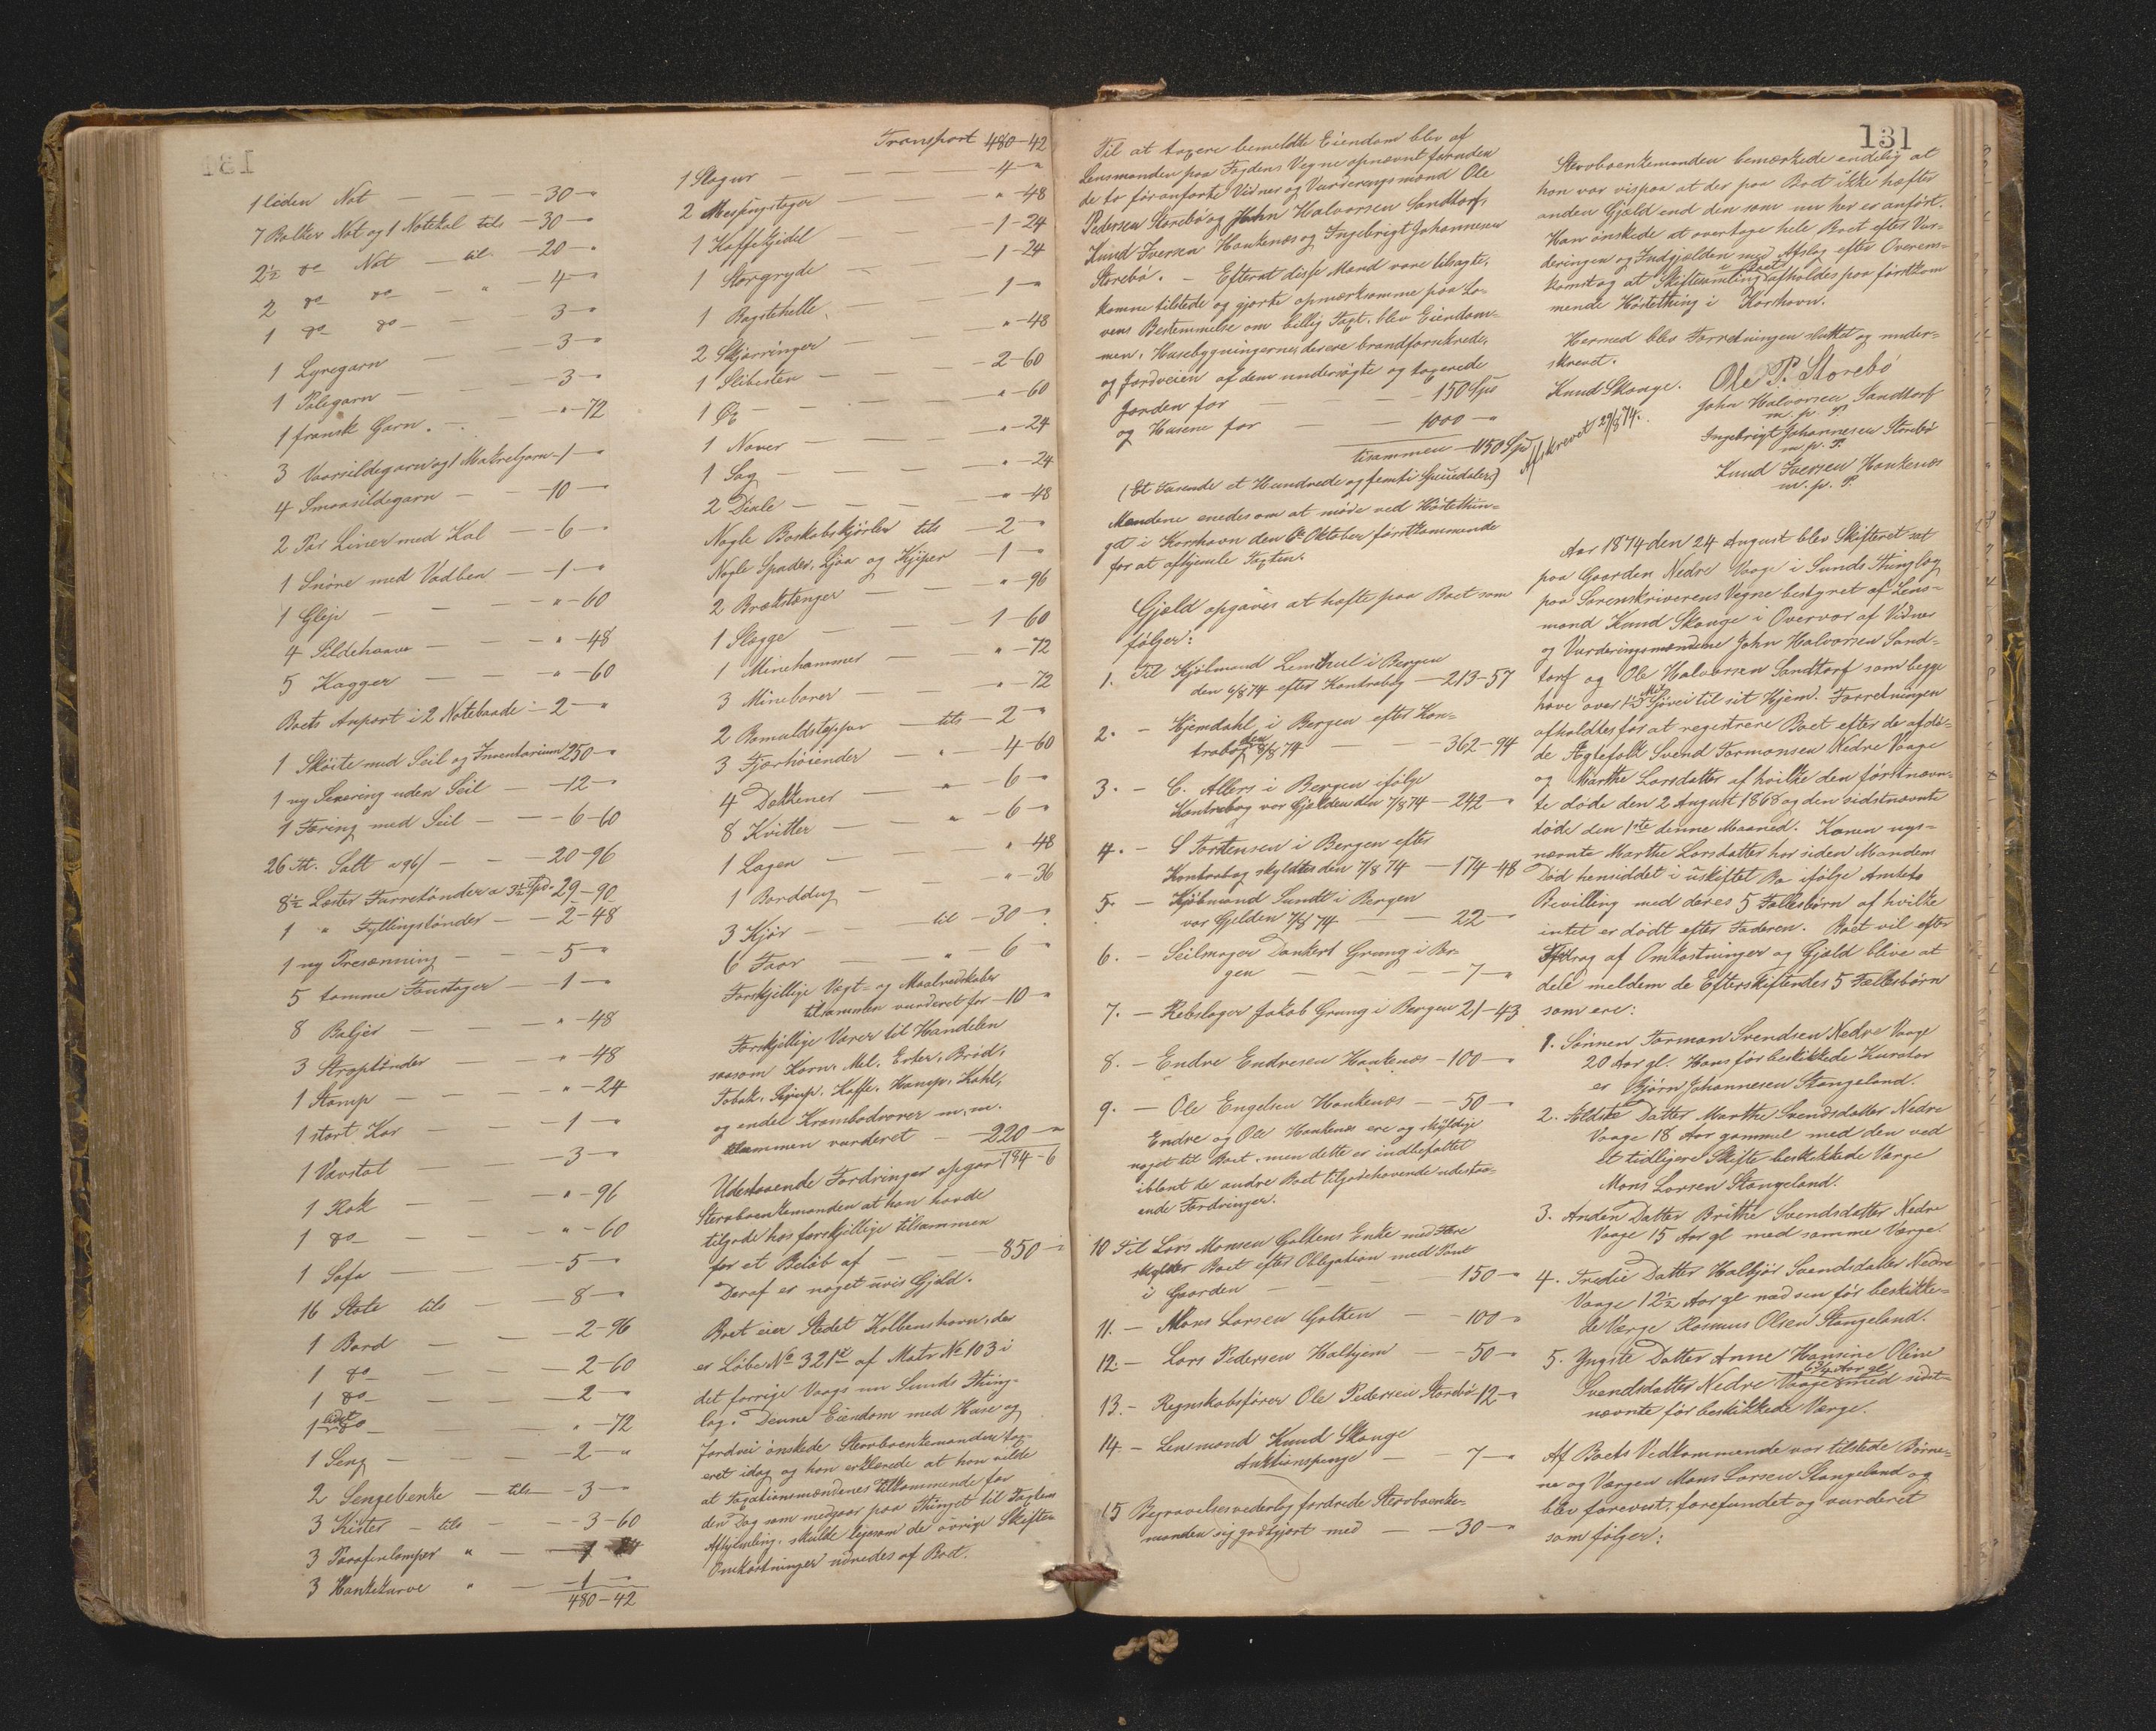 1 liden Not — — 30 — "
7 Bolker Not og 1 Notekal tils — 30 — "
2½ do Not — til — 20 — "
2 do do — " — 4 — "
1 do do — — 3 — "
1 Lyregarn — 3 — "
1 Palegarn — — 3 — "
1 fransk Garn. — " — 72
3 Vaarsildegarn og 1 Makrelgarn — 1 — "
4 Smaasildegarn — — 10 — "
2 Pas Liner med Kal — — 6 — "
1 Snöre med Vadben — — 1 — "
1 Glep — — — " — 60
4 Sildehaave — — " — 48
5 Kagger — — — " — 60
Boets Anpart i 2 Notebaade — 2 — "
1 Sköite med Seil og Inventarium 250 — "
1 ny Sexering uden Seil — 12 — "
1 Færing med Seil — — 6 — 60
26 Tt. Salt a 96/ — — 20 — 96
8½ Læster Furretönder a 3½ Spd. 29 — 90
1 " Fyllingstönder — — 2 — 48
1 ny Presenning — — 5 — "
5 tomme Foustager — — 1 — "
8 Baljer — — — " — 48
3 Straptönder — — " — 48
1 Stamp — — — " — 24
1 stort Kar — — 1 — "
1 Vævstol — — 3 — "
1 Rok — — " — 96
1 do — — " — 60
1 Sofa — — 5 — "
16 Stole tils — — 8 — "
1 Bord — — — 2 — 96
1 do — — — 2 — 60
1 do — — — 2 — "
1 lidet do — — " — 72
1 Seng — — — 2 — "
2 Sengebenke — tils — 3 — "
3 Kister — tils — — 3 — 60
3 Parafinlamper " —
3 Hankekurve " — — 1 — "
480 — 42
Transport 480 — 42
1 Slagur — — — 4 — "
2 Messingstager — — " — 48
1 Kaffekjedel — — 1 — 24
1 Storgryde — — 1 — 24
1 Bagstehelle — — 1 — "
2 Skjærringer — — " — 48
1 Slibesten — — 2 — 60
1 Öx — — — " — 60
1 Naver — — — " — 24
1 Sag — — — " — 24
2 Dixle — — — " — 48
Nogle Boskabskjörler tils — 2 — "
Nogle Spader, Ljaa og Kjiper — 1 — "
2 Brækstænger — — " — 96
1 Slægge — — 1 — 60
1 Minehammer — — " — 72
3 Mineborer — — " — 72
2 Bomuldstepper — tils — 2 — "
3 Fjærhöiender — " — 4 — 60
4 Dekkener — " — 6 — "
8 Kvitter — — " — 6 — "
1 Lagen — — " — 48
1 Borddug — — " — 36
3 Kjör — — til — 30 — "
6 Faar — — " — 6 — "
Forskjellige Vægt- og Maalredskaber
tilsammen vurderet for — 10 — "
Forskjellige Varer til Handelen
saasom Korn, Mel, Erter, Bröd,
Tobak, Syrup, Kaffe, Hamp, Kahl,
og endel Krambodvarer m. m.
tilsammen vurderet — 220 — "
794 — 6
Udestaaende Fordringer opgav
Stervboenkemanden at han havde
tilgode hos forskjellige tilsammen
for et Beløb af — — 850 — "
Deraf er noget uvis Gjeld.
Boet eier Stedet Kolbenshavn, der
er Löbe No 321 af Matr No 103 i
det forrige Vaags nu Sunds Thing-
lag. Denne Eiendom med Huse og
Jordvei önskede Stervboenkemanden tax-
eret idag og han erklærede at han vilde
at Taxationsmændenes Tilkommende for
den Dag som medgaar paa Thinget til Taxtens
Afhjemling, skulde ligesom de övrige Skifte-
Omkostninger udredes af Boet.
131
Til at taxere bemeldte Eiendom blev af
Lensmanden paa Fogdens Vegne opnævnt foruden
de to föranførte Vidner og Vurderingsmænd Ole
Pedersen Storebö og John Halvorsen Sandtorf,
Knud Iversen Haukenæs og Ingebrigt Johannesen
Storebö. — Efterat disse Mænd vare tilsagte,
komne tilstede og gjorte opmærksomme paa Lo-
vens Bestemmelse om billig Taxt, blev Eiendom-
men, Husebygningerne, der ere brandforsikrede,
og Jordveien af dem undersögte og taxerede
Jorden for — — 150 Spd
og Husene for — — 1000 — "
tilsammen — 1150 Spd
(Et Tusende et Hundrede og femti Speciedaler)
Mændene enedes om at möde ved Höstethin-
get i Korshavn den 6te Oktober förstkommende
for at afhjemle Taxten.
Gjæld opgaves at hæfte paa Boet som
følger:
1. Til Kjöbmand Lemkuel i Bergen
den 6/8 74 efter Kontrabog — 213 — 57
2. — Hjemdahl i Bergen efter Kon-
trabog den 8/8 74 — — 362 — 94
3. — C. Allers i Bergen ifölge
Kontrabog var Gjelden den 7/8 74 — 242 — "
4. — S Torstensen i Bergen efter
Kontrabog skyldtes den 7/8 74 — 174 — 48
5. — Kjöbmand Sundt i Bergen
var Gjelden 7/8 74 — — 22 — "
6. — Seilmager Dankert Grung i Ber-
gen — — — 7 — "
7. — Rebslager Jakob Grung i Bergen 21 — 43
8. — Endre Endresen Haukenæs — 100 — "
9. — Ole Engelsen Haukenæs — — 50 — "
Endre og Ole Haukenæs ere og skyldige
noget til Boet, men dette er indbefattet
iblant de andre Boet tilgodehavende udestaa-
ende Fordringer.
10 Til Lars Monsen Galtens Enke med Flere
skylder Boet efter Obligation med Pant
i Gaarden — — 150 — "
11. — Mons Larsen Galten — 100 — "
12. — Lars Pedersen Halhjem — — 50 — "
13. — Regnskabsförer Ole Pedersen Storebö 12 — "
14. — Lensmand Knud Skauge
Auktionspenge — 7 — "
15 Begravelsesvederlag fordrede Stervboenke-
manden sig godtgjort med — — 30 — "
Stervboenkemanden bemærkede endelig at
han var vis paa at der paa Boet ikke hæfter
anden Gjæld end den som nu her er anfört.
Han önskede at overtage hele Boet efter Vur-
deringen og Indgjælden med Afslag efter Overens-
komst og at Skiftesamling i Boet afholdes paa förstkom
mende Höstething i Korshavn.
Hermed blev Forretningen sluttet og under-
skrevet.
Knud Skauge. Ole P. Storebö
John Halvorsen Sandtorf
m. p. P.
Ingebrigt Johannesen Storebö
m. p. P.
Knud Iversen Haukenæs
m. p. P.
Afskrevet 29/8 74.
Aar 1874 den 24 August blev Skifteret sat
paa Gaarden Nedre Vaage i Sunds Thinglag
paa Sorenskriverens Vegne bestyret af Lens-
mand Knud Skauge i Overvær af Vidner
og Vurderingsmændene John Halvorsen Sand-
torf og Ole Halvorsen Sandtorf som begge
have over Mil Sjövei til sit Hjem. Forretningen
afholdtes for at registrere Boet efter de afdö-
de Ægtefolk Svend Tormonsen Nedre Vaage
og Marthe Larsdatter af hvilke den förstnævn-
te døde den 2 August 1868 og den sidstnævnte
døde den 1ste denne Maaned. Konen nys-
nævnte Marthe Larsdatter har siden Mandens
Död hensiddet i uskiftet Bo ifölge Amtets
Bevilling med deres 5 Fællesbörn af hvilke
intet er dödt efter Faderen. Boet vil efter
Fradrag af Omkostninger og Gjæld blive at
dele mellem de Efterskiftendes 5 Fællesbörn
som ere:
1. Sønnen Tormon Svendsen Nedre Vaage
20 Aar gl. Hans för beskikkede Kurator
er Björn Johannesen Stangeland.
2. Ældste Datter Marthe Svendsdatter Nedre
Vaage 18 Aar gammel med den ved
et tidligere Skifte beskikkede Værge
Mons Larsen Stangeland.
3. Anden Datter Brithe Svendsdatter Nedre
Vaage 15 Aar gl med samme Værge.
4. Tredie Datter Halbjör Svendsdatter Nedre
Vaage 12½ Aar gl med sin för beskikke-
de Værge Rasmus Olsen Stangeland.
5. Yngste Datter Anne Hansine Oline
Svendsdatter Nedre Vaage 6¾ Aar gl med sidst-
nævnte för beskikkede Værge.
Af Boets Vedkommende var tilstede Börne-
ne og Værgen Mons Larsen Stangeland og
blev forevist, forefundet og vurderet
som følger: